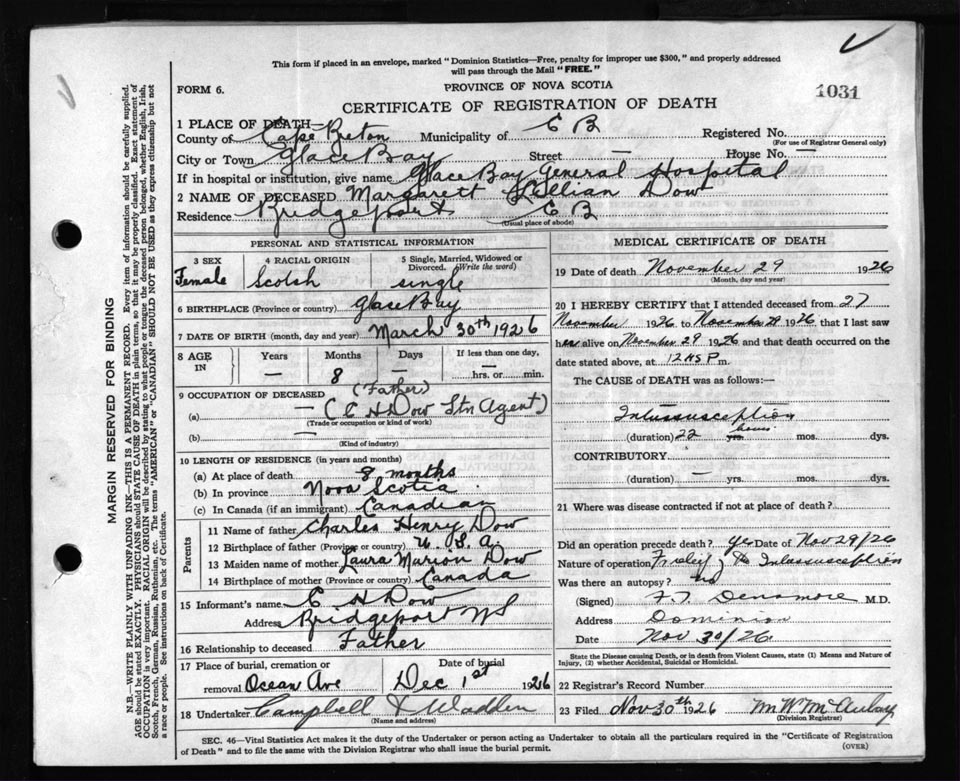 This form if placed in an envelope, marked "Dominion Statistics—Free, penalty for improper use $300," and properly addressed
will pass through the Mail "FREE."
FORM 6.
PROVINCE OF NOVA SCOTIA
1031
CERTIFICATE OF REGISTRATION OF DEATH
1 PLACE OF DEATH—
County of Cape Breton Municipality of C B Registered No.
(For use of Registrar General only)
City or Town Glace Bay Street — House No. —
If in hospital or institution, give name Glace Bay General Hospital
2 NAME OF DECEASED Margarett Lillian Dow
Residence Bridgeport C B
(Usual place of abode)
PERSONAL AND STATISTICAL INFORMATION
3 SEX
Female
4 RACIAL ORIGIN
Scotsh
5 Single, Married, Widowed or
Divorced. (Write the word)
single
6 BIRTHPLACE (Province or country) Glace Bay
7 DATE OF BIRTH (month, day and year) March 30th 1926
8 AGE
IN
Years
—
Months
8
Days
—
If less than one day,
—
hrs. or min.
9 OCCUPATION OF DECEASED (Father)
(a) — (C H Dow Stn Agent)
(Trade or occupation or kind of work)
(b) —
(Kind of industry)
10 LENGTH OF RESIDENCE (in years and months)
(a) At place of death 8 months
(b) In province Nova Scotia
(c) In Canada (if an immigrant) Canadian
Parents
11 Name of father Charles Henry Dow
12 Birthplace of father (Province or country) U. S. A.
13 Maiden name of mother Laura Marion Dow
14 Birthplace of mother (Province or country) Canada
15 Informant's name C H Dow
Address Bridgeport NS
16 Relationship to deceased Father
17 Place of burial, cremation or
removal Ocean Ave
Date of burial
Dec 1st 1926
18 Undertaker Campbell & Wadden
(Name and address)
MEDICAL CERTIFICATE OF DEATH
19 Date of death November 29 1926
(Month, day and year)
20 I HEREBY CERTIFY that I attended deceased from 27
November 1926 to November 29 1926, that I last saw
her alive on November 29 1926 and that death occurred on the
date stated above, at m.
The CAUSE OF DEATH was as follows:—
Intussusception
(duration) 22 hours yrs. mos. dys.
CONTRIBUTORY.
(duration) — yrs. mos. dys.
21 Where was disease contracted if not at place of death?
Did an operation precede death? yes Date of Nov 29/26
Nature of operation Intussusception
Was there an autopsy? no
(Signed) F. T. Densmore M.D.
Address Dominion
Date Nov 30/26
State the Disease causing Death, or in death from Violent Causes, state (1) Means and Nature of
Injury, (2) whether Accidental, Suicidal or Homicidal.
22 Registrar's Record Number
23 Filed Nov 30th 1926
(Division Registrar)
SEC. 46—Vital Statistics Act makes it the duty of the Undertaker or person acting as Undertaker to obtain all the particulars required in the "Certificate of Registration
of Death" and to file the same with the Division Registrar who shall issue the burial permit.
(OVER)
MARGIN RESERVED FOR BINDING
N.B.—WRITE PLAINLY WITH UNFADING INK—THIS IS A PERMANENT RECORD. Every item of information should be carefully supplied.
AGE should be stated EXACTLY. PHYSICIANS should STATE CAUSE OF DEATH in plain terms, so that it may be properly classified. Exact statement of
OCCUPATION is very important. RACIAL ORIGIN will be described by stating to what people or tongue the deceased person belonged, whether English, Irish,
Scotch, French, German, Russian, Ruthenian, etc. The terms "AMERICAN" or "CANADIAN" SHOULD NOT BE USED as they express citizenship but not
a race or people. See instructions on back of Certificate.